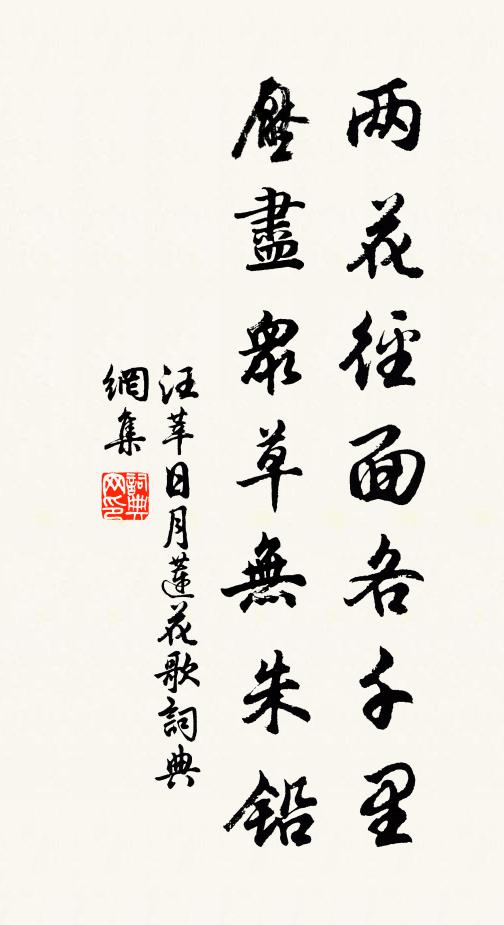 两花径面各千里
壓盡衆草無朱鉛
汪莘日月蓮花歌詞典
網集
詞典網印